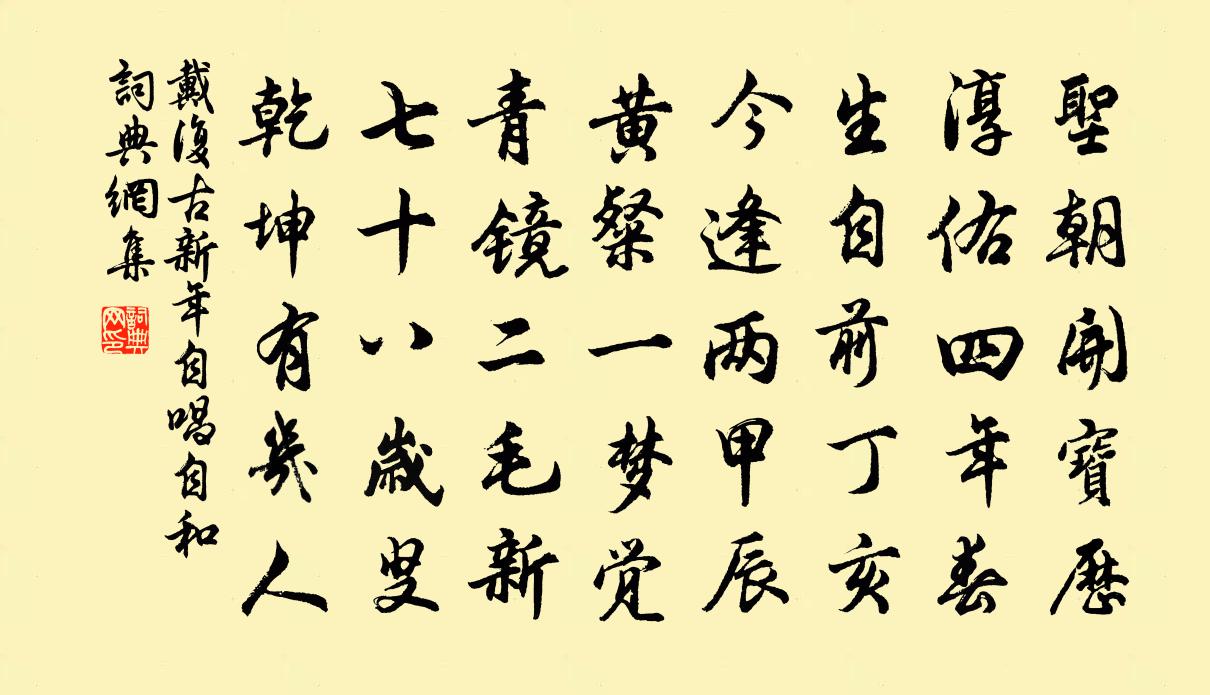 聖朝開寶歷
淳佑四年春
生自前丁亥
今逢两甲辰
黄粲一梦觉
青镜二毛新
七十八歲叟
乾坤有幾人
戴復古新年自唱自和
詞典網集
詞典网印